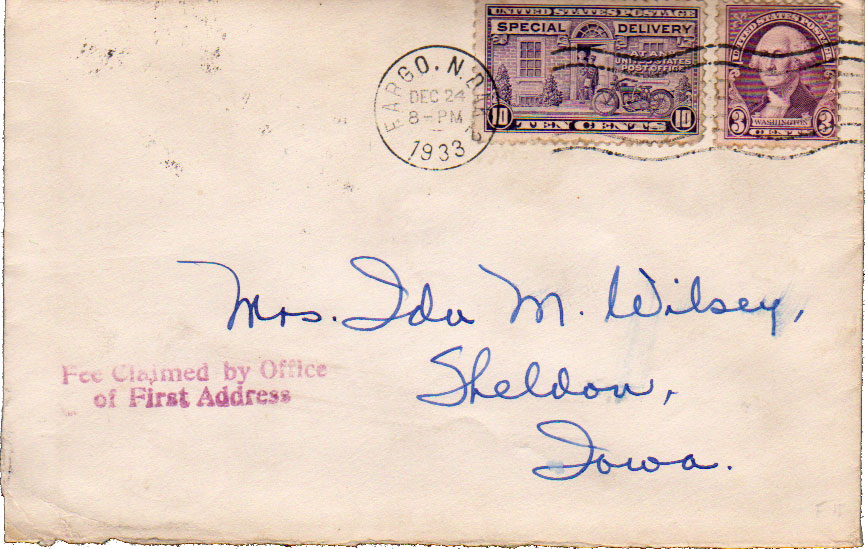 UNITED STATES POSTAGE
SPECIAL DELIVERY
AT ANY
UNITED STATES
POST OFFICE
10 TEN CENTS 10
UNITED STATES POSTAGE
WASHINGTON
3 CENTS 3
FARGO, N.DAK.
DEC 24
8-PM
1933
Mrs. Ida M. Wilsey,
Sheldon,
Iowa.
Fee Claimed by Office
of First Address